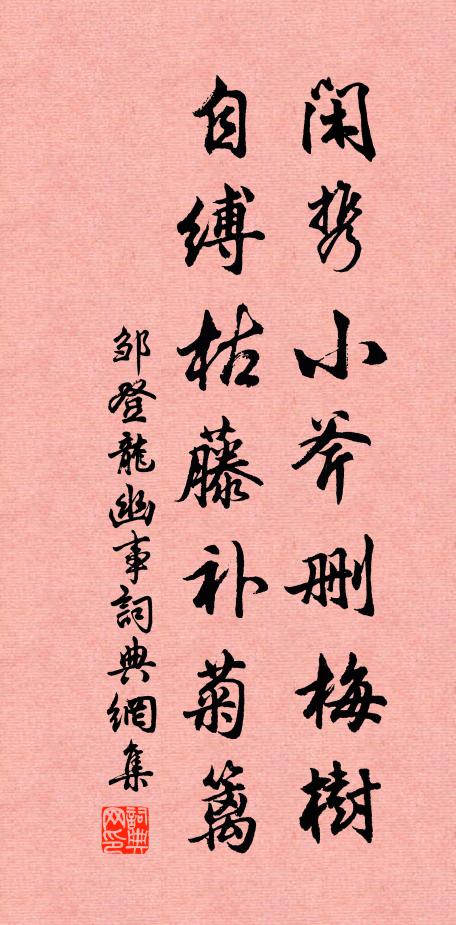 闲携小斧删梅树
自缚枯藤补菊篱
邹登龍幽事詞典網集
詞典网印